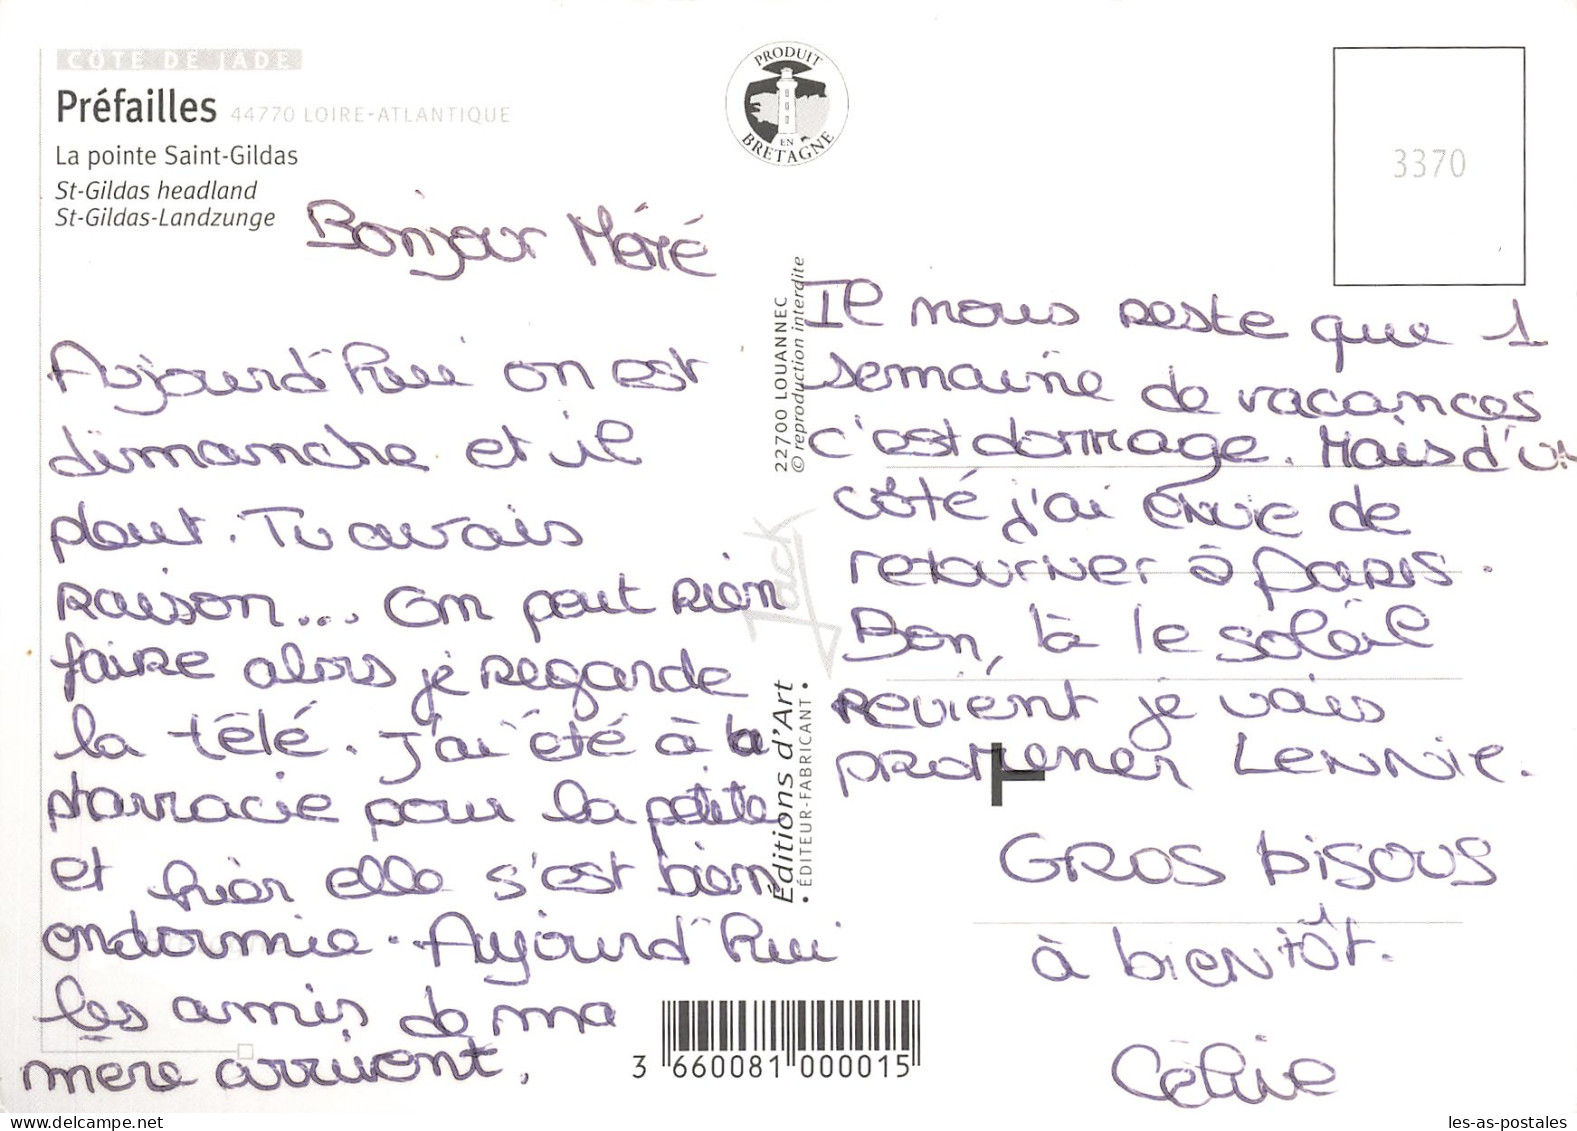 CÔTE DE JADE
Préfailles 44770 LOIRE-ATLANTIQUE
La pointe Saint-Gildas
St-Gildas headland
St-Gildas-Landzunge
PRODUIT
EN
BRETAGNE
3370
Bonjour Méré
Aujourd'hui on est
dimanche et il
pleut. Tu avais
raison... On peut rien
faire alors je regarde
la télé. J'ai été à la
pharmacie pour la petite
et hier elle s'est bien
endormie. Aujourd'hui
les amis de ma
mère arrivent.
22700 LOUANNEC
© reproduction interdite
Jack
Éditions d'Art
• ÉDITEUR-FABRICANT •
Il nous reste que 1
semaine de vacances
c'est dommage. Mais d'un
côté j'ai envie de
retourner à Paris.
Bon, là le soleil
revient je vais
promener LENNIE.
GROS bisous
à bientôt.
Céline
3 660081 000015
les-as-postales